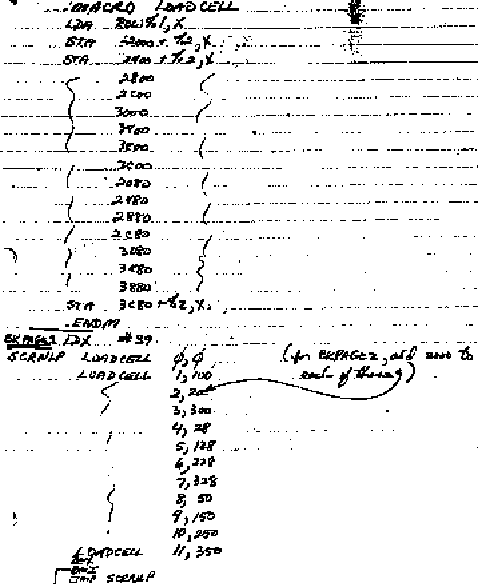 .MACRO LOADCELL
LDA ROW%1,X
STA 2000+%2,X
STA 2400+%2,X
2800
2C00
3000
3400
3800
3C00
2080
2480
2880
2C80
3080
3480
3880
STA 3C80+%2,X
.ENDM
BKPAGE1 LDX #39.
SCRNLP LOADCELL 0,0 (for BKPAGE2, add 2000 to
LOADCELL 1,100 each of these)
2,200
3,300
4,28
5,128
6,228
7,328
8,50
9,150
10,250
LOADCELL 11,350
SCRNLP